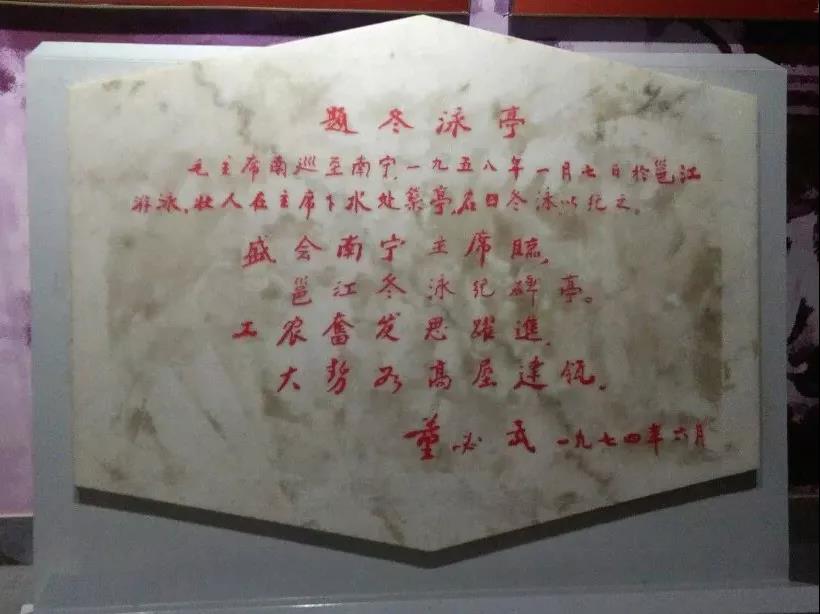 题冬泳亭
毛主席南巡至南宁,一九五八年一月七日於邕江
游泳,壮人在主席下水处築亭,名曰冬泳以纪之。
盛会南宁主席临,
邕江冬泳纪碑亭。
工农奋发思躍進,
大势若高屋建瓴。
董必武 一九七四年六月